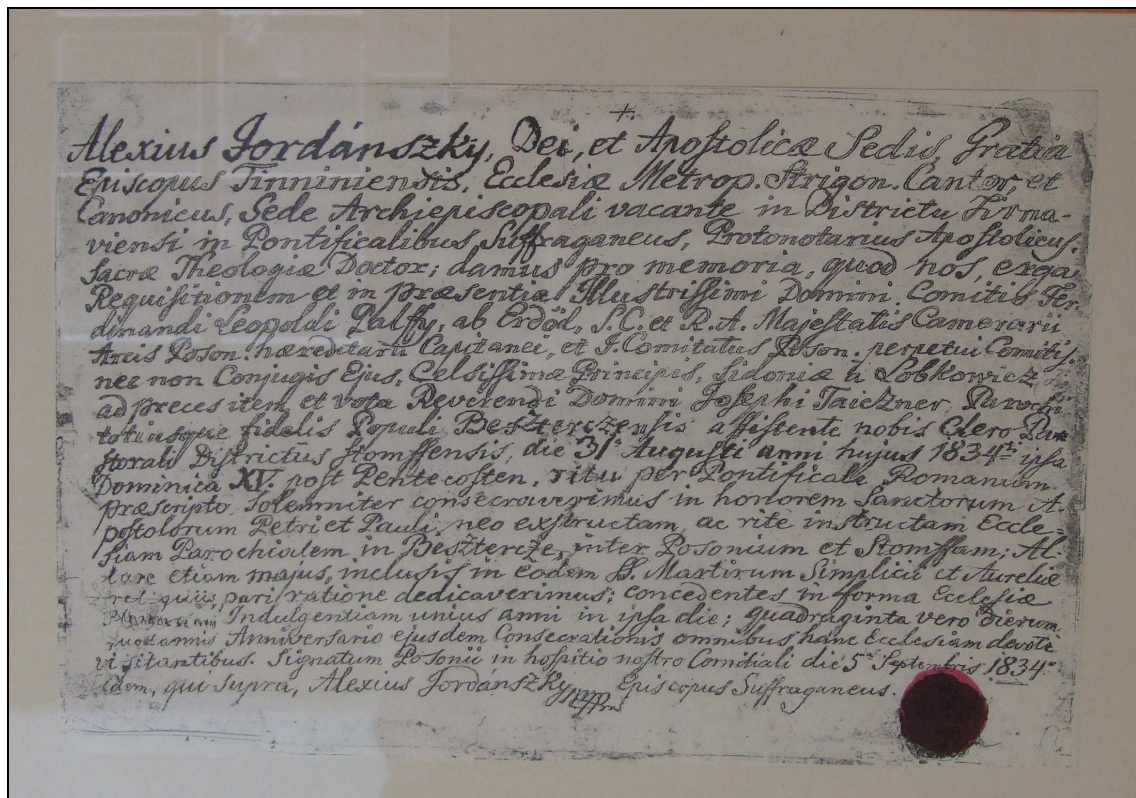 +
Alexius Jordánszky, Dei, et Apostolicæ Sedis, Gratia
Episcopus Tinniniensis, Ecclesiæ Metrop. Strigon. Cantor, et
Canonicus, Sede Archiepiscopali vacante in Districtu Tirna-
viensi in Pontificalibus, Suffraganeus, Protonotarius Apostolicus.
Sacræ Theologiæ Doctor; damus pro memoria, quod nos, erga
Requisitionem et in præsentia Illustrissimi Domini Comitis Fer-
dinandi Leopoldi Palffy, ab Erdöd, S.C. et R.A. Majestatis Camerarii
Arcis Poson. hæreditarii Capitanei, et I. Comitatus Poson. perpetui Comitis,
nec non Conjugis Ejus, Celsissimæ Principis, Sidoniæ a Lobkowicz
ad preces item, et vota Reverendi Domini Josephi Parochi
totiusque fidelis Populi Besztercensis assistente nobis Clero Pa-
storali Districtus Stomffensis, die 31ª Augusti anni hujus 1834ti ipsa
Dominica XV. post Pentecosten, ritu per Pontificale Romanum
præscripto, solemniter consecraverimus in honorem Sanctorum A-
postolorum Petri et Pauli, neo exstructam, ac rite instructam Eccle-
siam Parochialem in Besztercze, inter Posonium et Stomffam; Al-
tare etiam majus, inclusis in eodem SS. Martirum Simplicii et Aureliæ
reliquiis, pari ratione dedicaverimus; concedentes in forma Ecclesiæ
Indulgentiam unius anni in ipsa die; quadraginta vero dierum
quotannis Anniversario ejusdem Consecrationis omnibus hanc Ecclesiam devote
visitantibus. Signatum Posonii in hospitio nostro Comitiali die 5ª Septembris 1834ª
Idem, qui supra, Alexius Jordánszky Episcopus Suffraganeus.